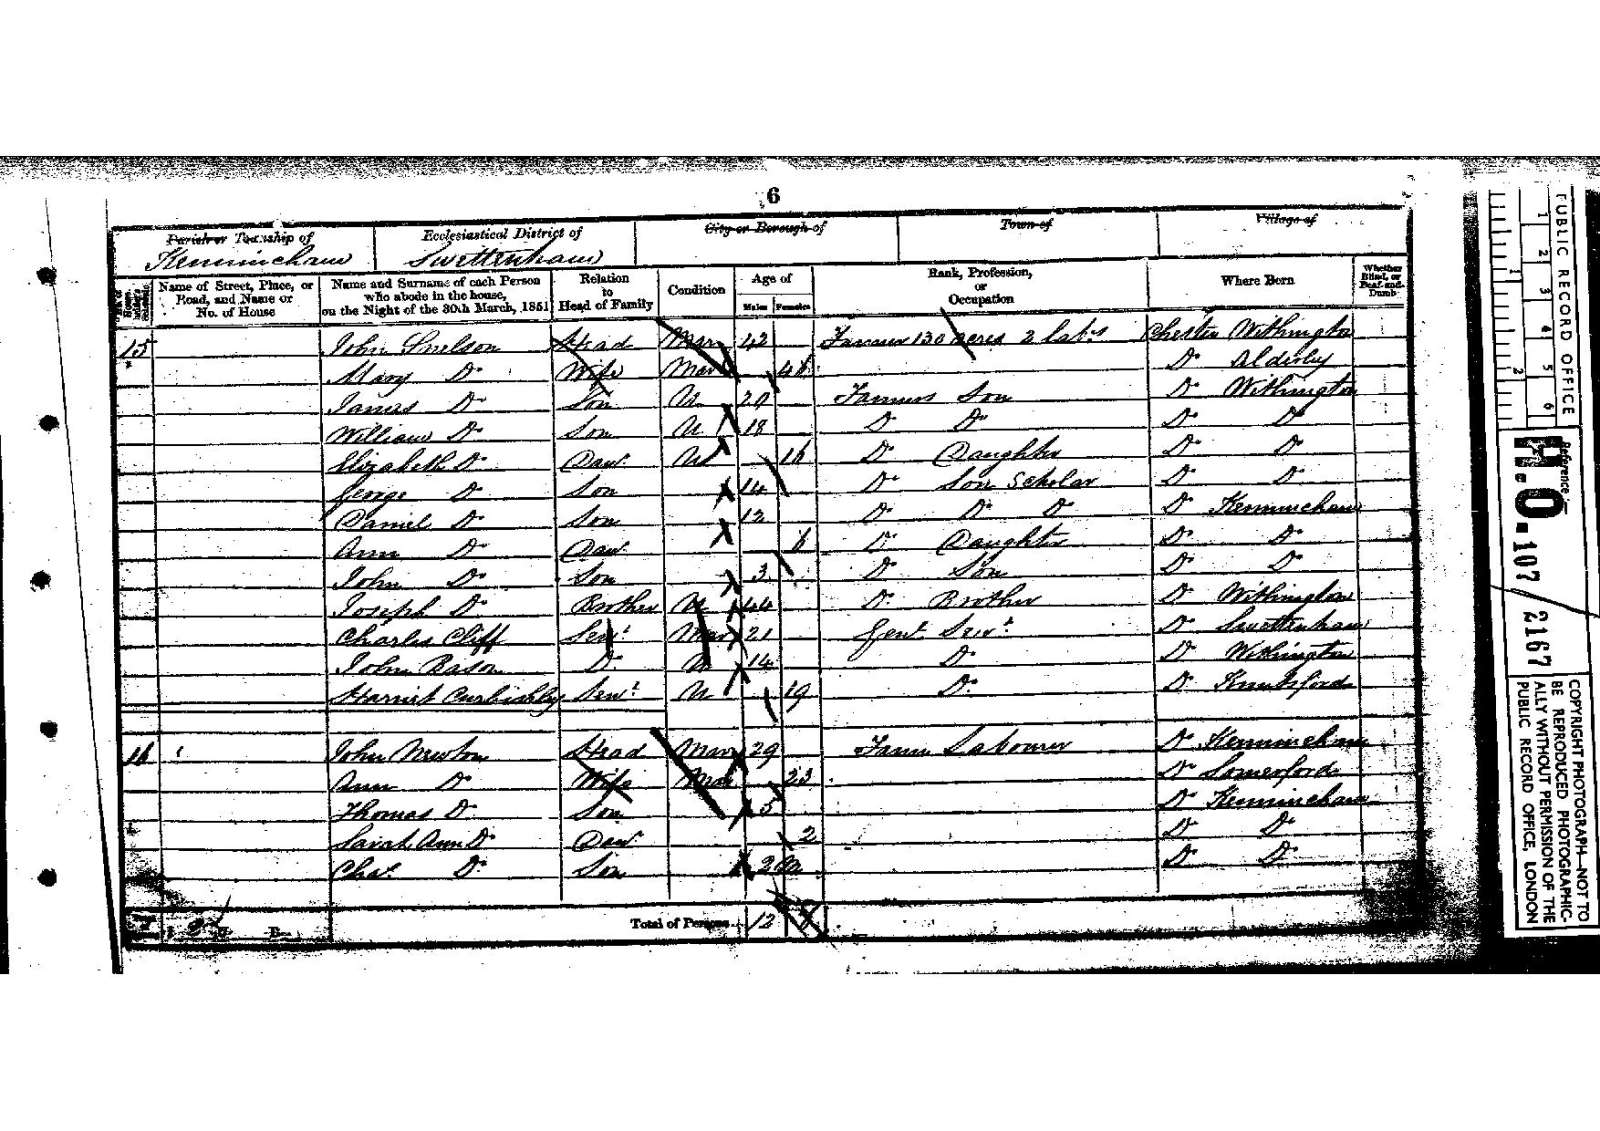 6
Parish or Township of Ecclesiastical District of City or Borough of Town of Village of
Kermincham Swettenham
Name of Street, Place, or Road, and Name or No. of House Name and Surname of each Person who abode in the house, on the Night of the 30th March, 1851 Relation to Head of Family Condition Age of Males Females Rank, Profession, or Occupation Where Born Whether Blind, or Deaf-and-Dumb
15 John Snelson Head Mar 42 Farmer 130 acres 2 labrs Chester Withington
Mary Do Wife Mar 46 Do Alderley
James Do Son U 20 Farmers Son Do Withington
William Do Son U 18 Do Do Do Do
Elizabeth Do Daur U 16 Do Daughter Do Do
George Do Son 14 Do Son Scholar Do Do
Daniel Do Son 12 Do Do Do Do Kermincham
Ann Do Daur 6 Do Daughter Do Do
John Do Son 3 Do Son Do Do
Joseph Do Brother U 44 Do Brother Do Withington
Charles Cliff Servt Mar 21 Genl Servt Do Swettenham
John Rason Do U 14 Do Do Withington
Harriet Curbishley Servt U 19 Do Do Knutsford
16 John Newton Head Mar 29 Farm Labourer Do Kermincham
Ann Do Wife Mar 23 Do Somerford
Thomas Do Son 5 Do Kermincham
Sarah Ann Do Daur 2 Do Do
Chas Do Son 2 m Do Do
Total of Persons 12
PUBLIC RECORD OFFICE
1 2 3 4 5 6
1 2
Reference:-
H.O. 107 / 2167
COPYRIGHT PHOTOGRAPH—NOT TO BE REPRODUCED PHOTOGRAPHICALLY WITHOUT PERMISSION OF THE PUBLIC RECORD OFFICE, LONDON